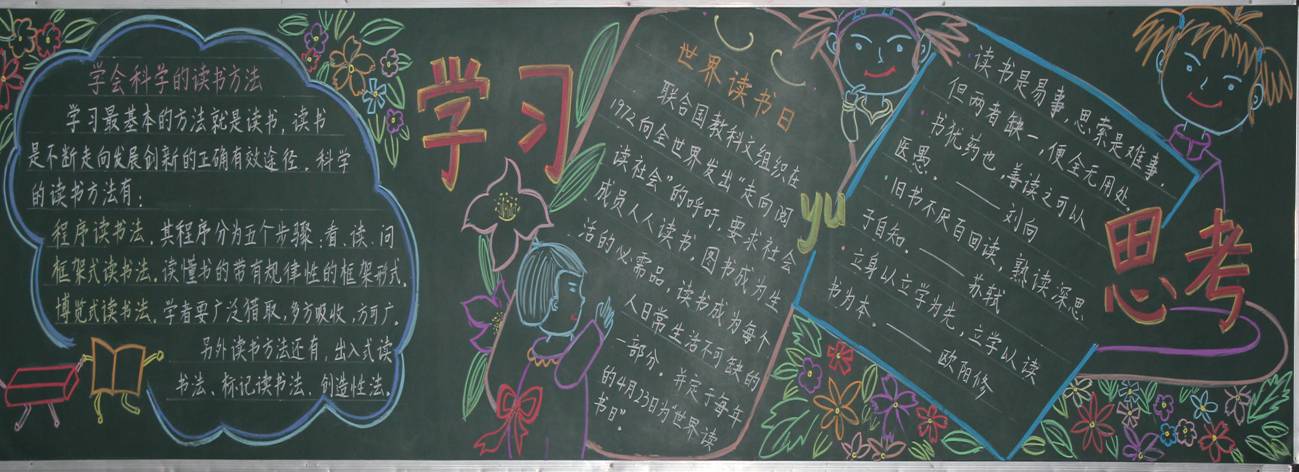 学会科学的读书方法
学习最基本的方法就是读书，读书
是不断走向发展创新的正确有效途径。科学
的读书方法有：
程序读书法，其程序分为五个步骤：看、读、问
框架式读书法，读懂书的带有规律性的框架形式。
博览式读书法，学者要广泛猎取，多方吸收，方可广。
另外读书方法还有，出入式读
书法、标记读书法、创造性法。
学习
yu
思考
世界读书日
联合国教科文组织在
1972向全世界发出“走向阅
读社会”的呼吁，要求社会
成员人人读书，图书成为生
活的必需品，读书成为每个
人日常生活不可缺的
一部分。并定于每年
的4月23日为“世界读
书日”。
读书是易事，思索是难事，
但两者缺一，便全无用处。
书犹药也，善读之可以
医愚。——刘向
旧书不厌百回读，熟读深思
子自知。——苏轼
立身以立学为先，立学以读
书为本。——欧阳修